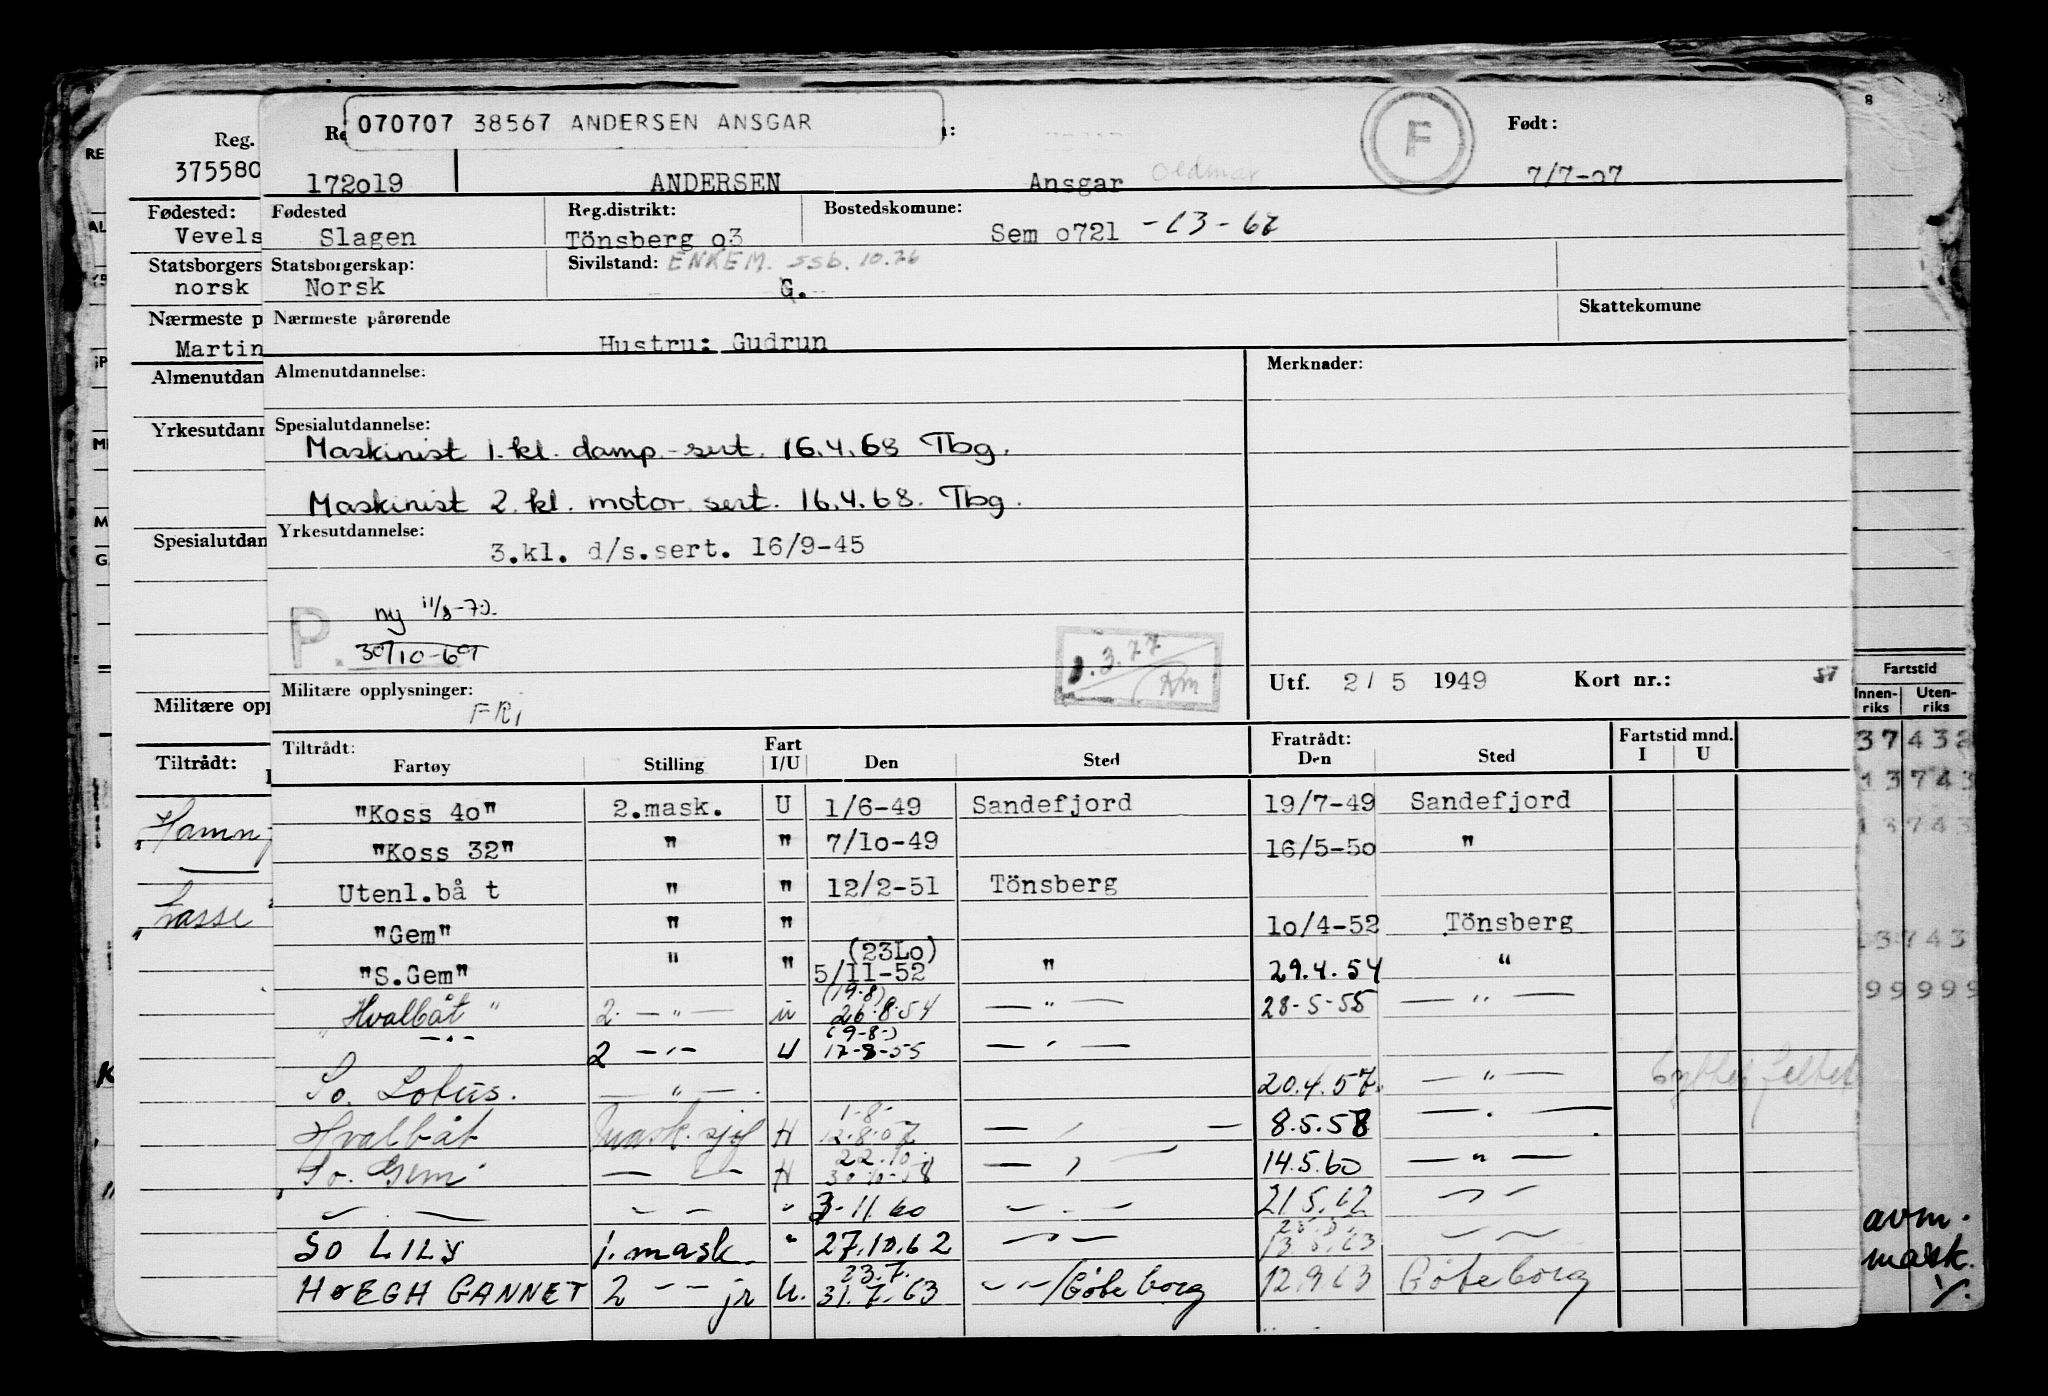 070707 38567 ANDERSEN ANSGAR
F
Født:
Reg.
375580
172o19 ANDERSEN Ansgar 7/7-o7
Fødested: Fødested Reg.distrikt: Bostedskomune:
Vevels Slagen Tönsberg o3 Sem o721 -13-62
Statsborgers Statsborgerskap: Sivilstand: ENKEM. ssb. 10.76
norsk Norsk G.
Skattekomune
Nærmeste p Nærmeste pårørende
Martin Hustru: Gudrun
Almenutdan Almenutdannelse: Merknader:
Yrkesutdann Spesialutdannelse:
Maskinist 1. kl. damp-sert. 16.4.68 Tbg.
Maskinist 2. kl. motor. sert. 16.4.68. Tbg.
Spesialutdan Yrkesutdannelse:
3.kl. d/s.sert. 16/9-45
P. ny 11/3-70.
30/10-69
3.77
Rm
Utf. 2/5 1949 Kort nr.:
Militære opp Militære opplysninger:
FRI
Fartstid
Innen-riks Uten-riks
Tiltrådt: Tiltrådt: Fratrådt: Fartstid mnd.
Fartøy Stilling Fart I/U Den Sted Den Sted I U
"Koss 4o" 2.mask. U 1/6-49 Sandefjord 19/7-49 Sandefjord
"Koss 32" " " 7/1o-49 16/5-5o "
Utenl.bå t " " 12/2-51 Tönsberg
"Gem" " " 1o/4-52 Tönsberg
(23Lo)
"S.Gem" " " 5/11-52 " 29.4.54 "
(19-8)
"Hvalbåt" 2. — " — u 26.8.54 — " — 28-5-55 — " —
(9-8-)
— " — 2 — " — U 17-8-55 — " —
So. Lotus. — " — 20.4.57. — " —
1-8-
Hvalbåt mask. sjef H 12.8.57 — " — 8.5.58 — " —
22.10
So. Gem — " — H 30.10-58 — " — 14.5.60 — " —
— " — — " — " 3-11.60 — " — 21.5.62 — " —
SO LILY 1. mask. " 27.10.62 — " — 13.5.63 — " —
23.7.
HØEGH GANNET 2 — " — jr U. 31.7.63 — " —/Göteborg 12.9.63 Göteborg
37 432
13 743
13 743
13 743
99 999
avm.
mask.